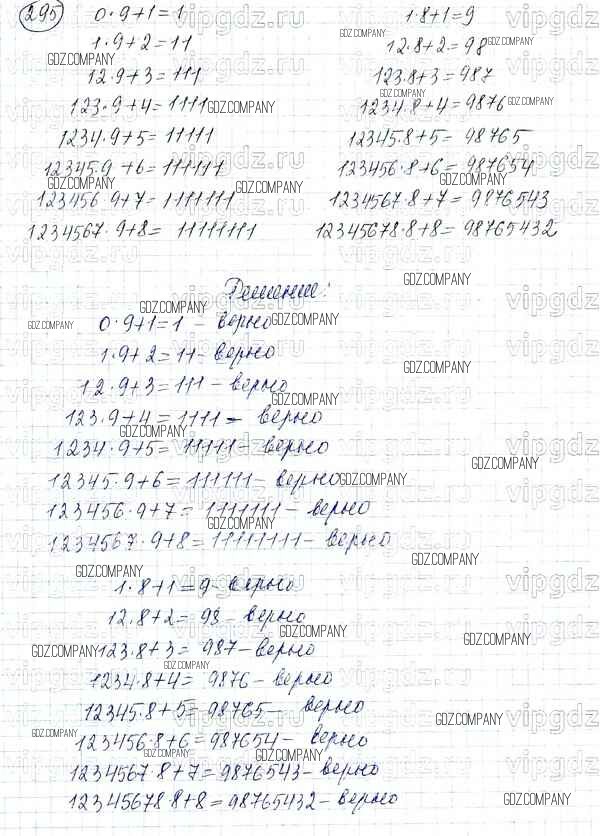 295
0·9+1=1
1·9+2=11
12·9+3=111
123·9+4=1111
1234·9+5=11111
12345·9+6=111111
123456·9+7=1111111
1234567·9+8=11111111
1·8+1=9
12·8+2=98
123·8+3=987
1234·8+4=9876
12345·8+5=98765
123456·8+6=987654
1234567·8+7=9876543
12345678·8+8=98765432
Решение:
0·9+1=1 - верно
1·9+2=11 - верно
12·9+3=111 - верно
123·9+4=1111 - верно
1234·9+5=11111 - верно
12345·9+6=111111 - верно
123456·9+7=1111111 - верно
1234567·9+8=11111111 - верно
1·8+1=9 - верно
12·8+2=98 - верно
123·8+3=987 - верно
1234·8+4=9876 - верно
12345·8+5=98765 - верно
123456·8+6=987654 - верно
1234567·8+7=9876543 - верно
12345678·8+8=98765432 - верно
GDZ.COMPANY
vipgdz.ru